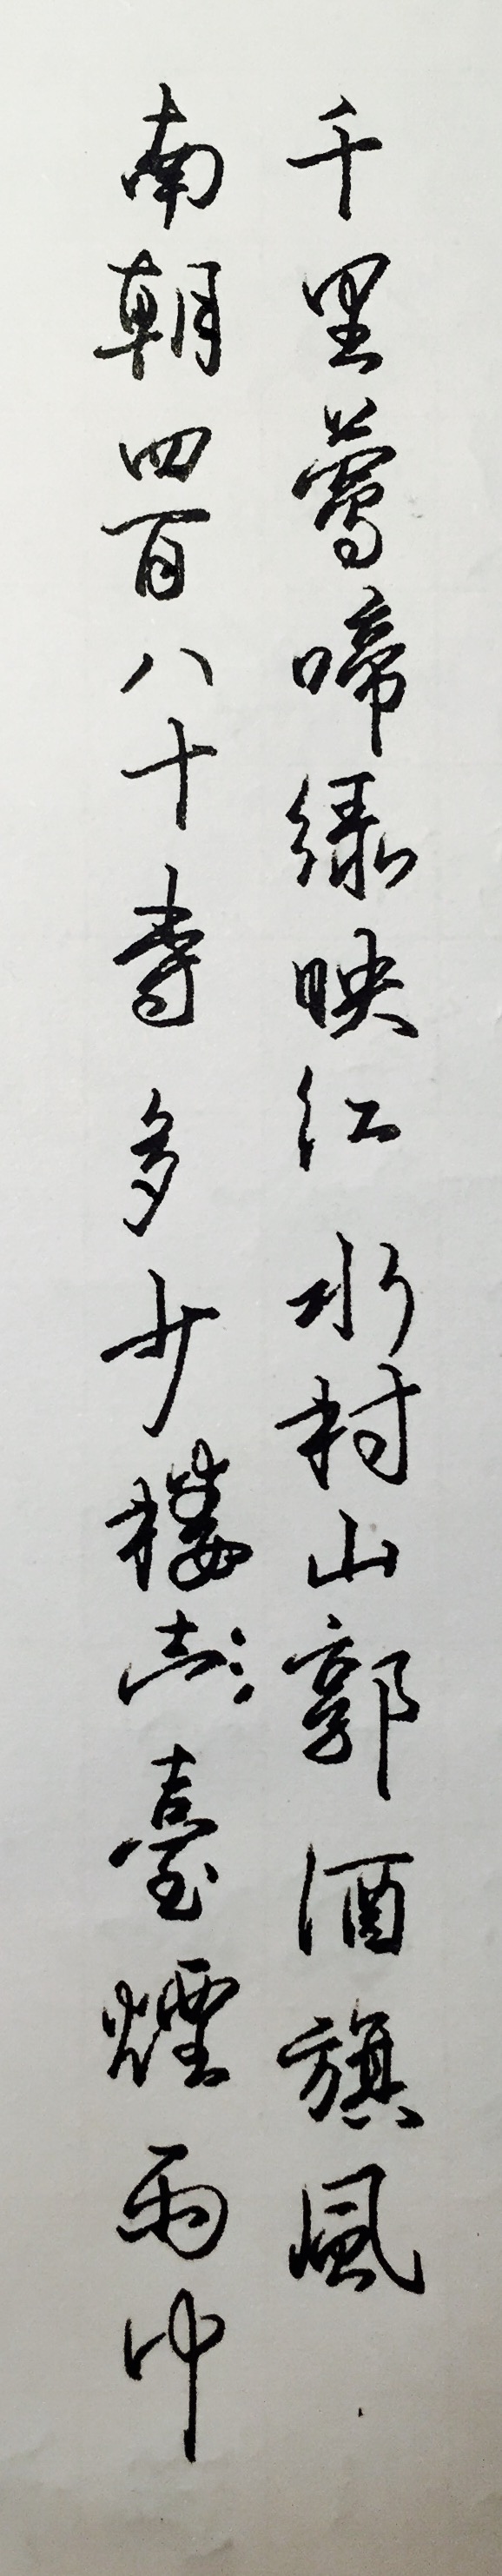 千里莺啼绿映红水村山郭酒旗風
南朝四百八十寺多少楼臺煙雨中